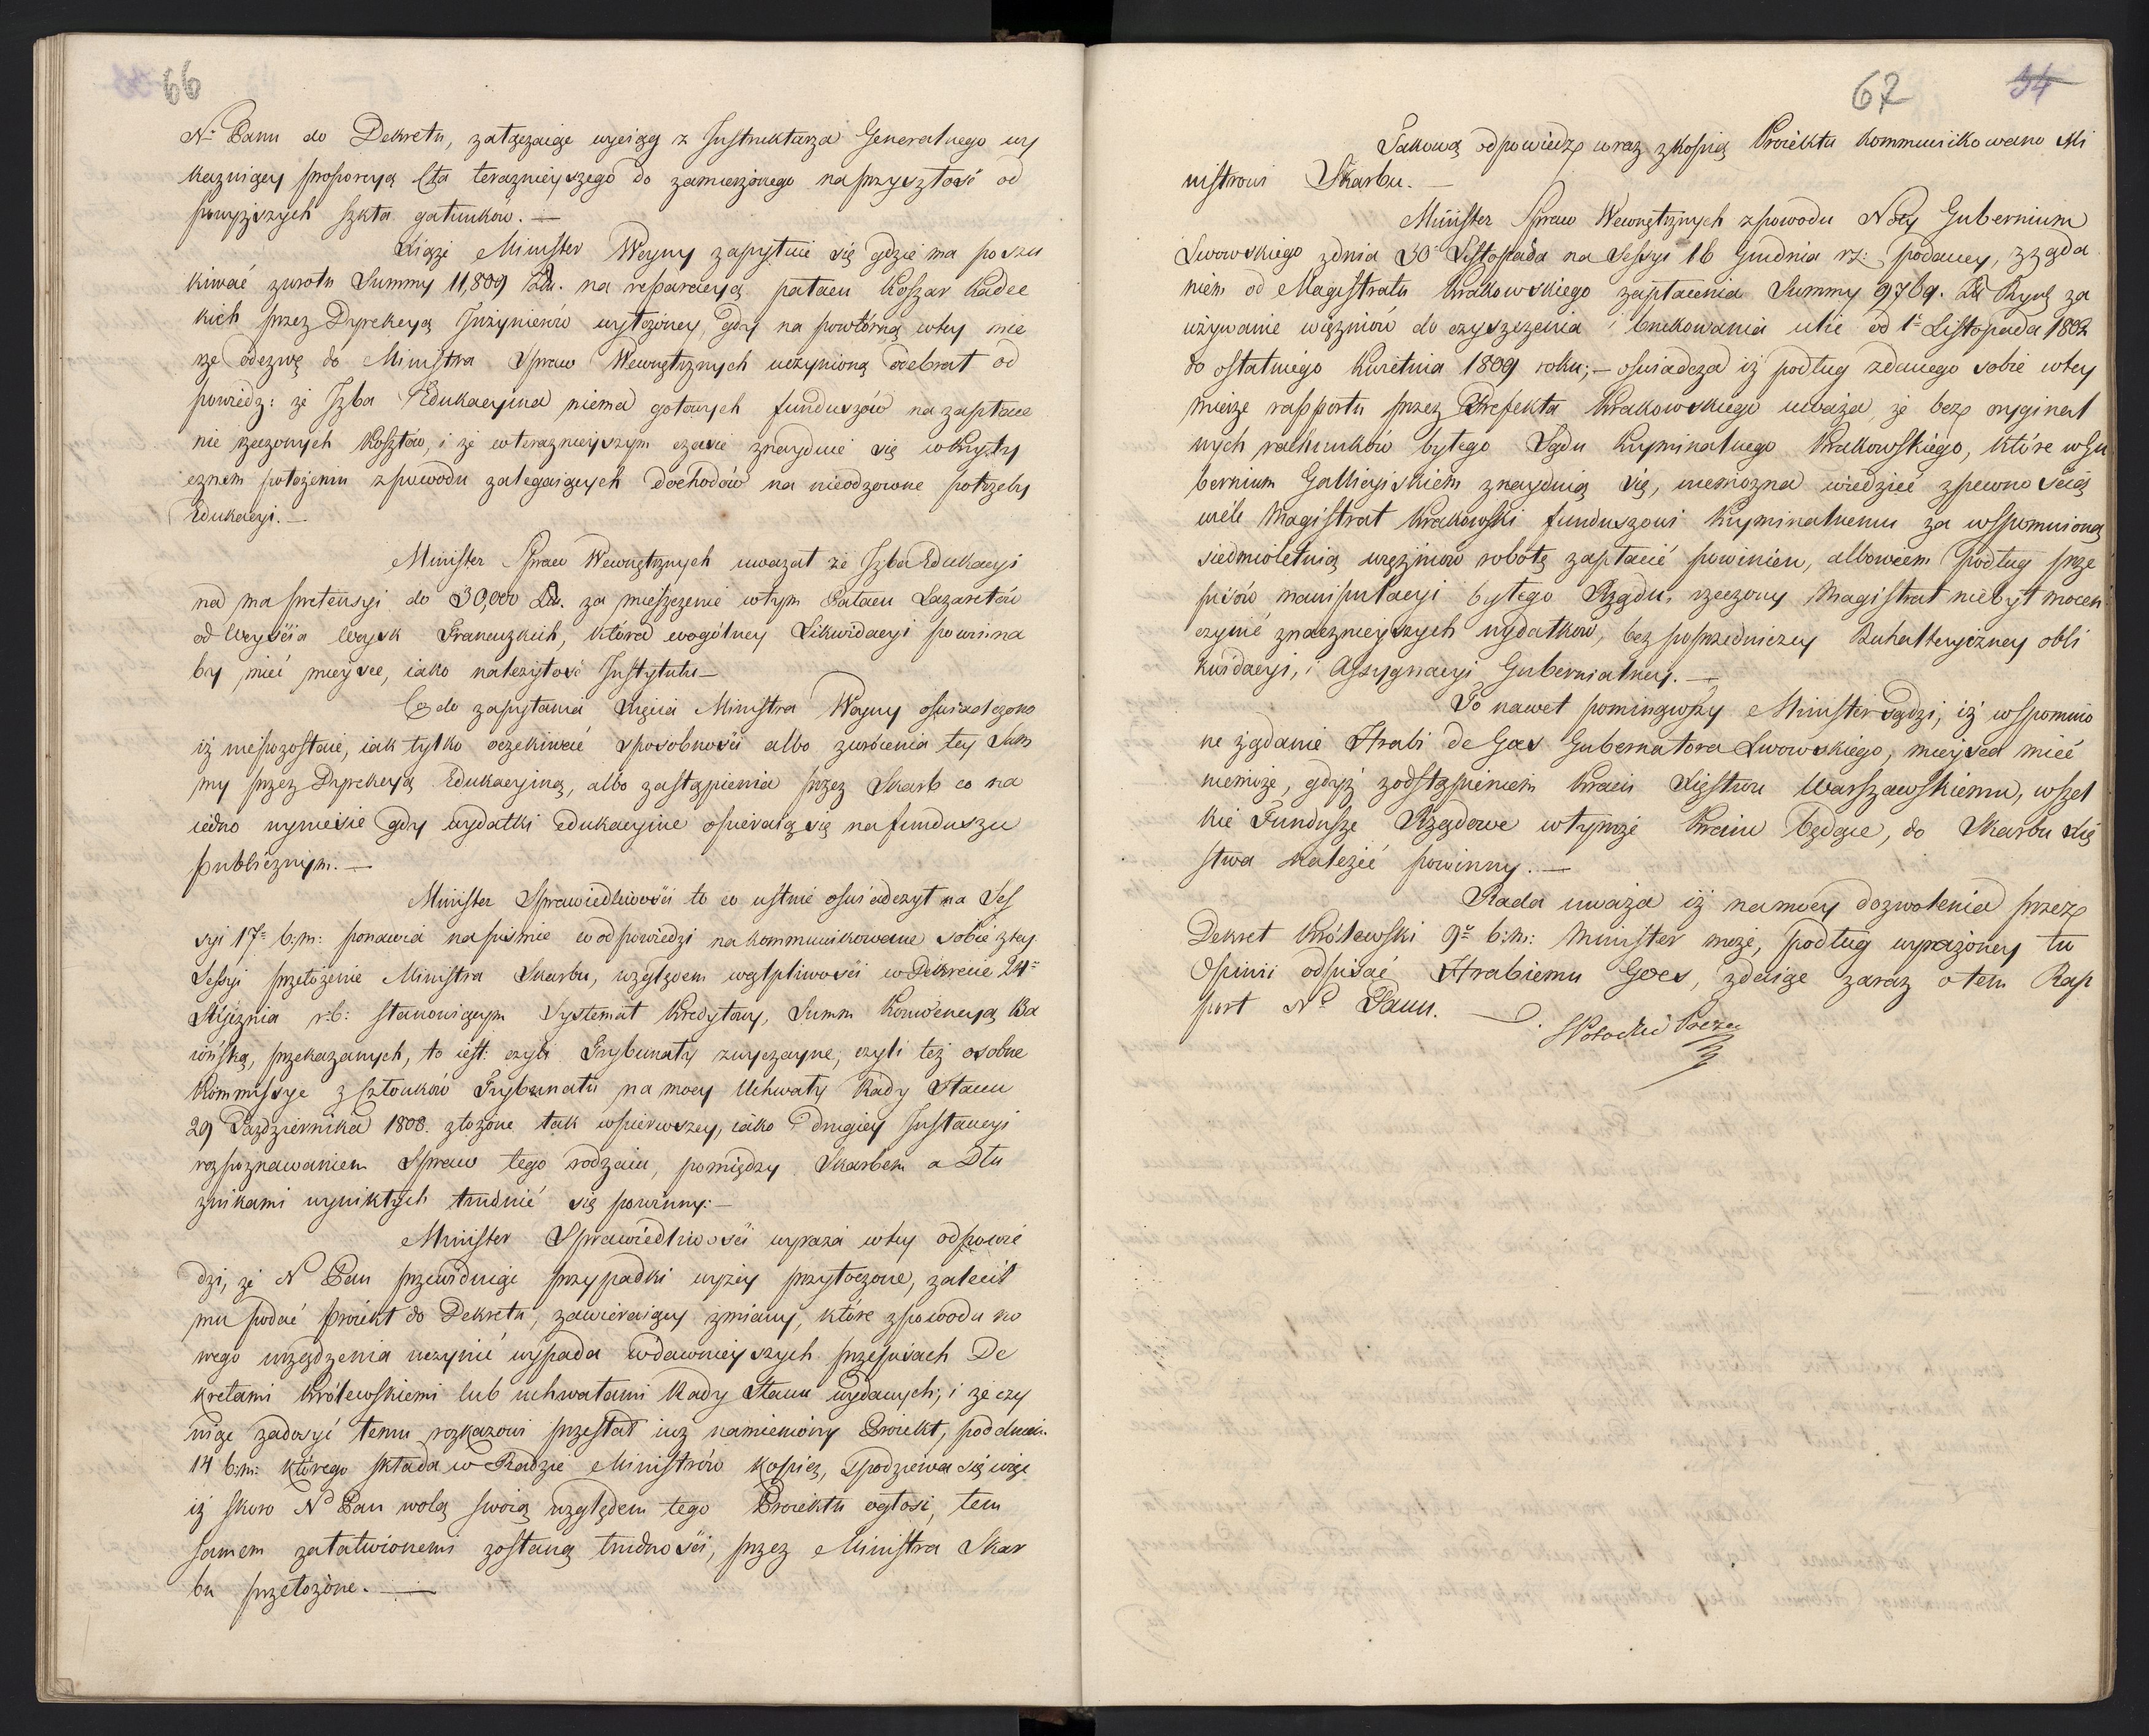 66
No Panu do Dekretu, załączaiąc wyciąg z Instruktarza Generalnego wy
kazuiący proporcyą Cła teraznieyszego do zamierzonego naprzyszłość od
powyższych szkła gatunków. —
Xiąże Minister Woyny zapytuie się gdzie ma poszu
kiwać zwrotu Summy 11,809 Zł. na reparacyą pałacu Koszar Kadec
kich przez Dyrekcyą Inżynierów wyłożoney, gdy na powtórną wtey mie
rze odezwę do Ministra Spraw Wewnętrznych uczynioną odebrał od
powiedz: że Izba Edukacyina niema gotowych funduszów na zapłace
nie rzeczonych Kosztów, i że wteraznieyszym czasie znayduie się wkryty
cznem położeniu zpowodu zalegaiących dochodów na nieodzowne potrzeby
Edukacyi. —
Minister Spraw Wewnętrznych uważał że Izba Edukacyi
na ma pretensyi do 30,000 Zł. za mieszczenie wtym Pałacu Lazaretów
od Weyścia Woysk Francuzkich, która wogólney Likwidacyi powinna
by mieć mieysce, iako należytość Instytutu —
Co do zapytania Xięcia Ministra Woyny oświadczono
iż niepozostaie, iak tylko oczekiwać sposobności albo zwrócenia tey Sum
my przez Dyrekcyą Edukacyiną, albo zastąpienia przez Skarb co na
iedno wyniesie gdy wydatki edukacyine opieraią się na funduszu
publicznym. —
Minister Sprawiedliwości to co ustnie oświadczył na Ses
syi 17a b:m: ponawia napismie wodpowiedzi nakommunikowane sobie ztey
Sessyi przełożenie Ministra Skarbu, względem wątpliwości w Dekrecie 24o
Stycznia r:b: stanowiącym Systemat Kredytowy, Summ Konwencyą Ba
iońską, przekazanych, to iest: czyli Trybunały zwyczayne, czyli też osobne
Kommissye z Członków Trybunału na mocy Uchwały Rady Stanu
29 Pazdziernika 1808. złożone tak wpierwszey, iako i drugiey Instancyi
rozpoznawaniem Spraw tego rodzaiu, pomiędzy Skarbem a Dłu
żnikami wynikłych trudnić się powinny: —
Minister Sprawiedliwości wyraża wtey odpowie
dzi, że N Pan przewiduiąc przypadki wyżey przytoczone, zalecił
mu podać proiekt do Dekretu, zawieraiący zmiany, które zpowodu no
wego urządzenia uczynić wypada wdawnieyszych przepisach De
kretami Królewskiemi lub uchwałami Rady Stanu wydanych; i że czy
niąc zadosyć temu rozkazowi przesłał iuż namieniony Proiekt, pod dniem
14 b:m: którego składa w Radzie Ministrów kopią, Spodziewa się więc
iż skoro No Pan wolą swoią względem tego Proiektu ogłosi, tem
samem załatwionemi zostaną trudności, przez Ministra Skar
bu przełożone. —
67
34
Takową odpowiedz wraz zkopią Proiektu kommunikowano Mi
nistrowi Skarbu. —
Minister Spraw Wewnętrznych zpowodu Noty Gubernium
Lwowskiego zdnia 30o Listopada na Sessyi 16 Grudnia rz: podaney, zżąda
niem od Magistratu Krakowskiego zapłacenia Summy 9769. Zł Ryńs za
używanie więzniów do czyszczenia i brukowania ulic od 1o Listopada 1802
do ostatniego Kwietnia 1809 roku; — oświadcza iż podług zdanego sobie wtey
mierze rapportu przez Prefekta Krakowskiego uważa, że bez oryginal
nych rachunków byłego Sądu Kryminalnego Krakowskiego, które wGu
bernium Gallicyiskiem znayduią się, niemożna wiedzieć zpewnością
wiele Magistrat Krakowski funduszowi Kryminalnemu za wspomnioną
siedmioletnią więzniów robotę zapłacić powinien, albowiem podług prze
pisów manipulacyi byłego Rządu, rzeczony Magistrat niebył mocen
czynić znacznieyszych wydatków, bez poprzedniczey Buhalteryczney obli
kwidacyi, i Assygnacyi Gubernialney. —
To nawet pominąwszy Minister sądzi, iż wspomnio
ne żądanie Hrabi de Goes Gubernatora Lwowskiego, mieysca mieć
niemoże, gdyż zodstąpieniem Kraiu Xięstwu Warszawskiemu, wszel
kie Fundusze Rządowe wtymże Kraiu będące, do Skarbu Xię
stwa należeć powinny. —
Rada uważa iż namocy dozwolenia przez
Dekret Królewski 9o b:m: Minister może, podług wyrażoney tu
Opinii odpisać Hrabiemu Goes, zdaiąc zaraz o tem Rap
port No Panu. —
S Potocki Prezes